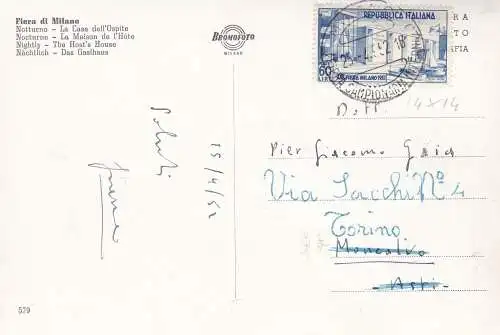 Fiera di Milano
Notturno - La Casa dell'Ospite
Nocturne - La Maison de l'Hôte
Nightly - The Host's House
Nächtlich - Das Gasthaus
Bromofoto
MILANO
REPUBBLICA ITALIANA
60
LIRE
FIERA MILANO 1952
CAMPIONARIA
RA
TO
FIA
14x14
Dott.
Pier Giacomo Gaia
Via Sacchi N° 4
Torino
Moncalvo
Asti
Saluti
15/4/52
579